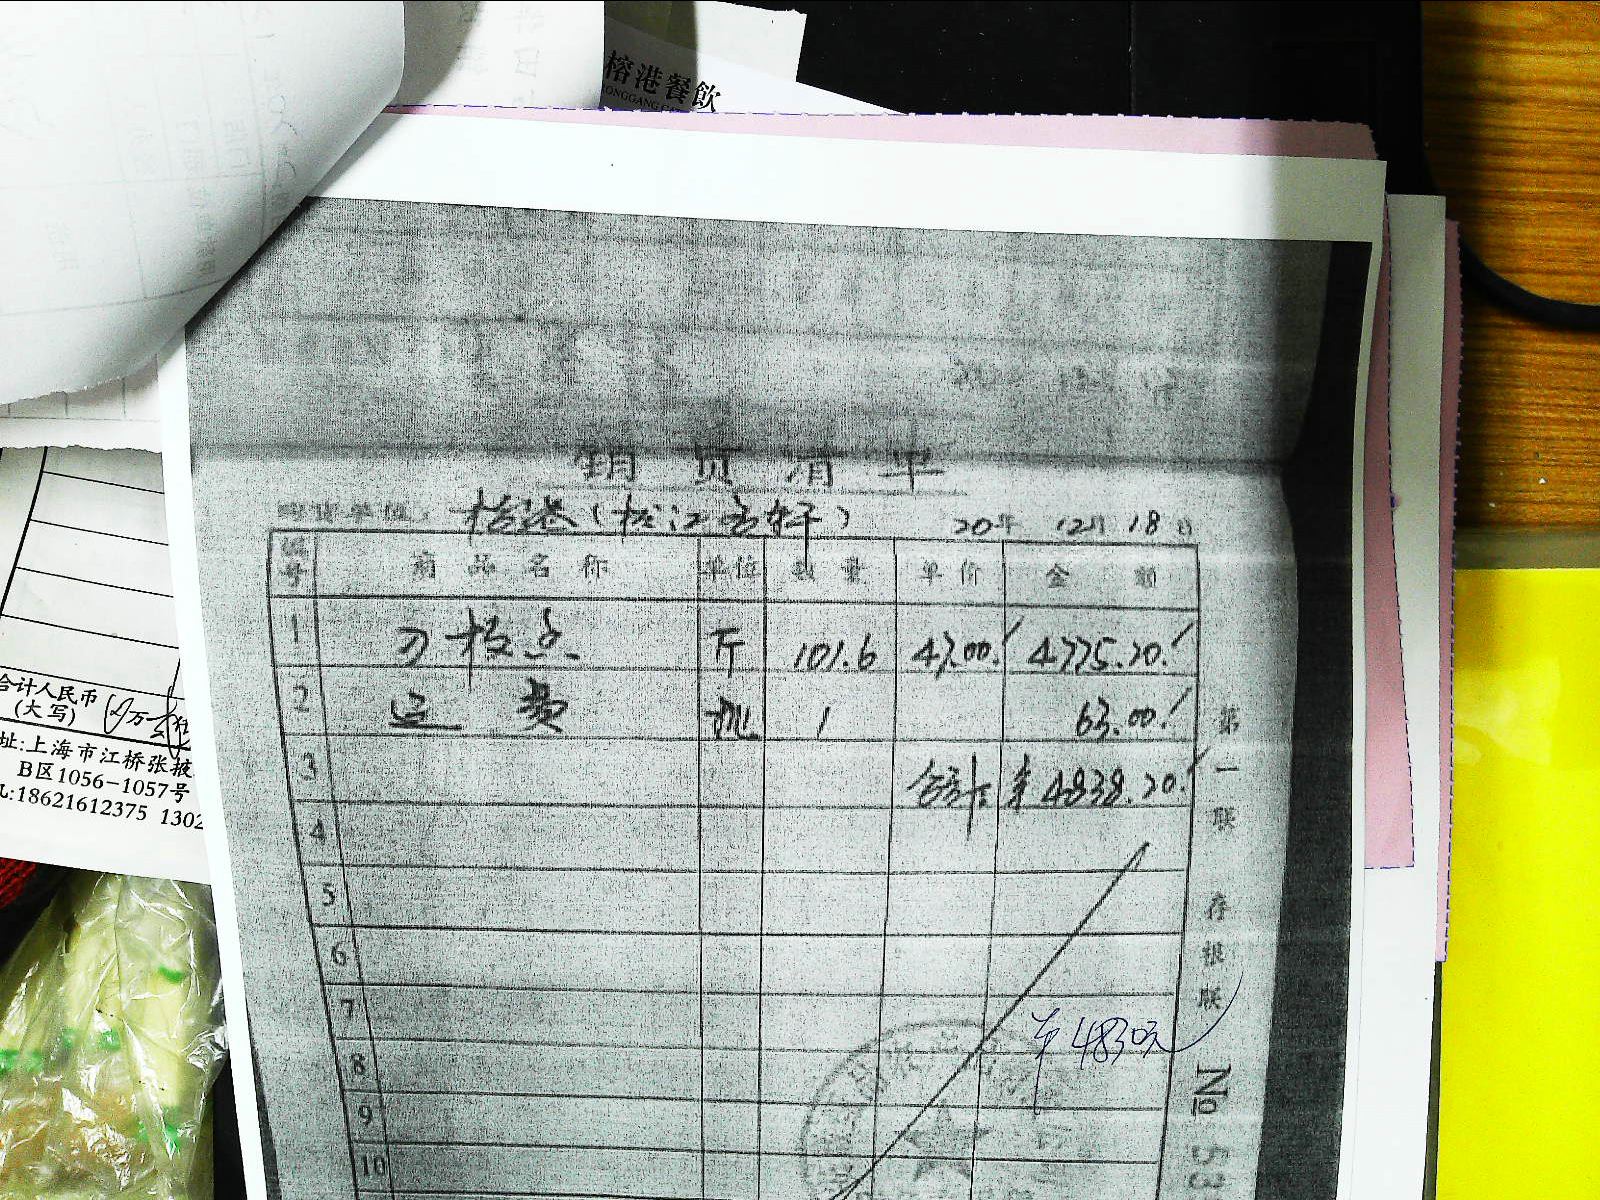 榕港餐飲
销货清单
购货单位：榕港（松江吉轩） 20年 12月 18日
编号 商品名称 单位 数量 单价 金额
1 刀板鱼 斤 101.6 47.00 4775.20
2 运费 1 63.00
3 合计 ¥4838.20
4
5
6
7
¥4830元
8
9
10
第一联 存根联 No 53
合计人民币
(大写)
址:上海市江桥张掖
B区1056-1057号
:18621612375 1302